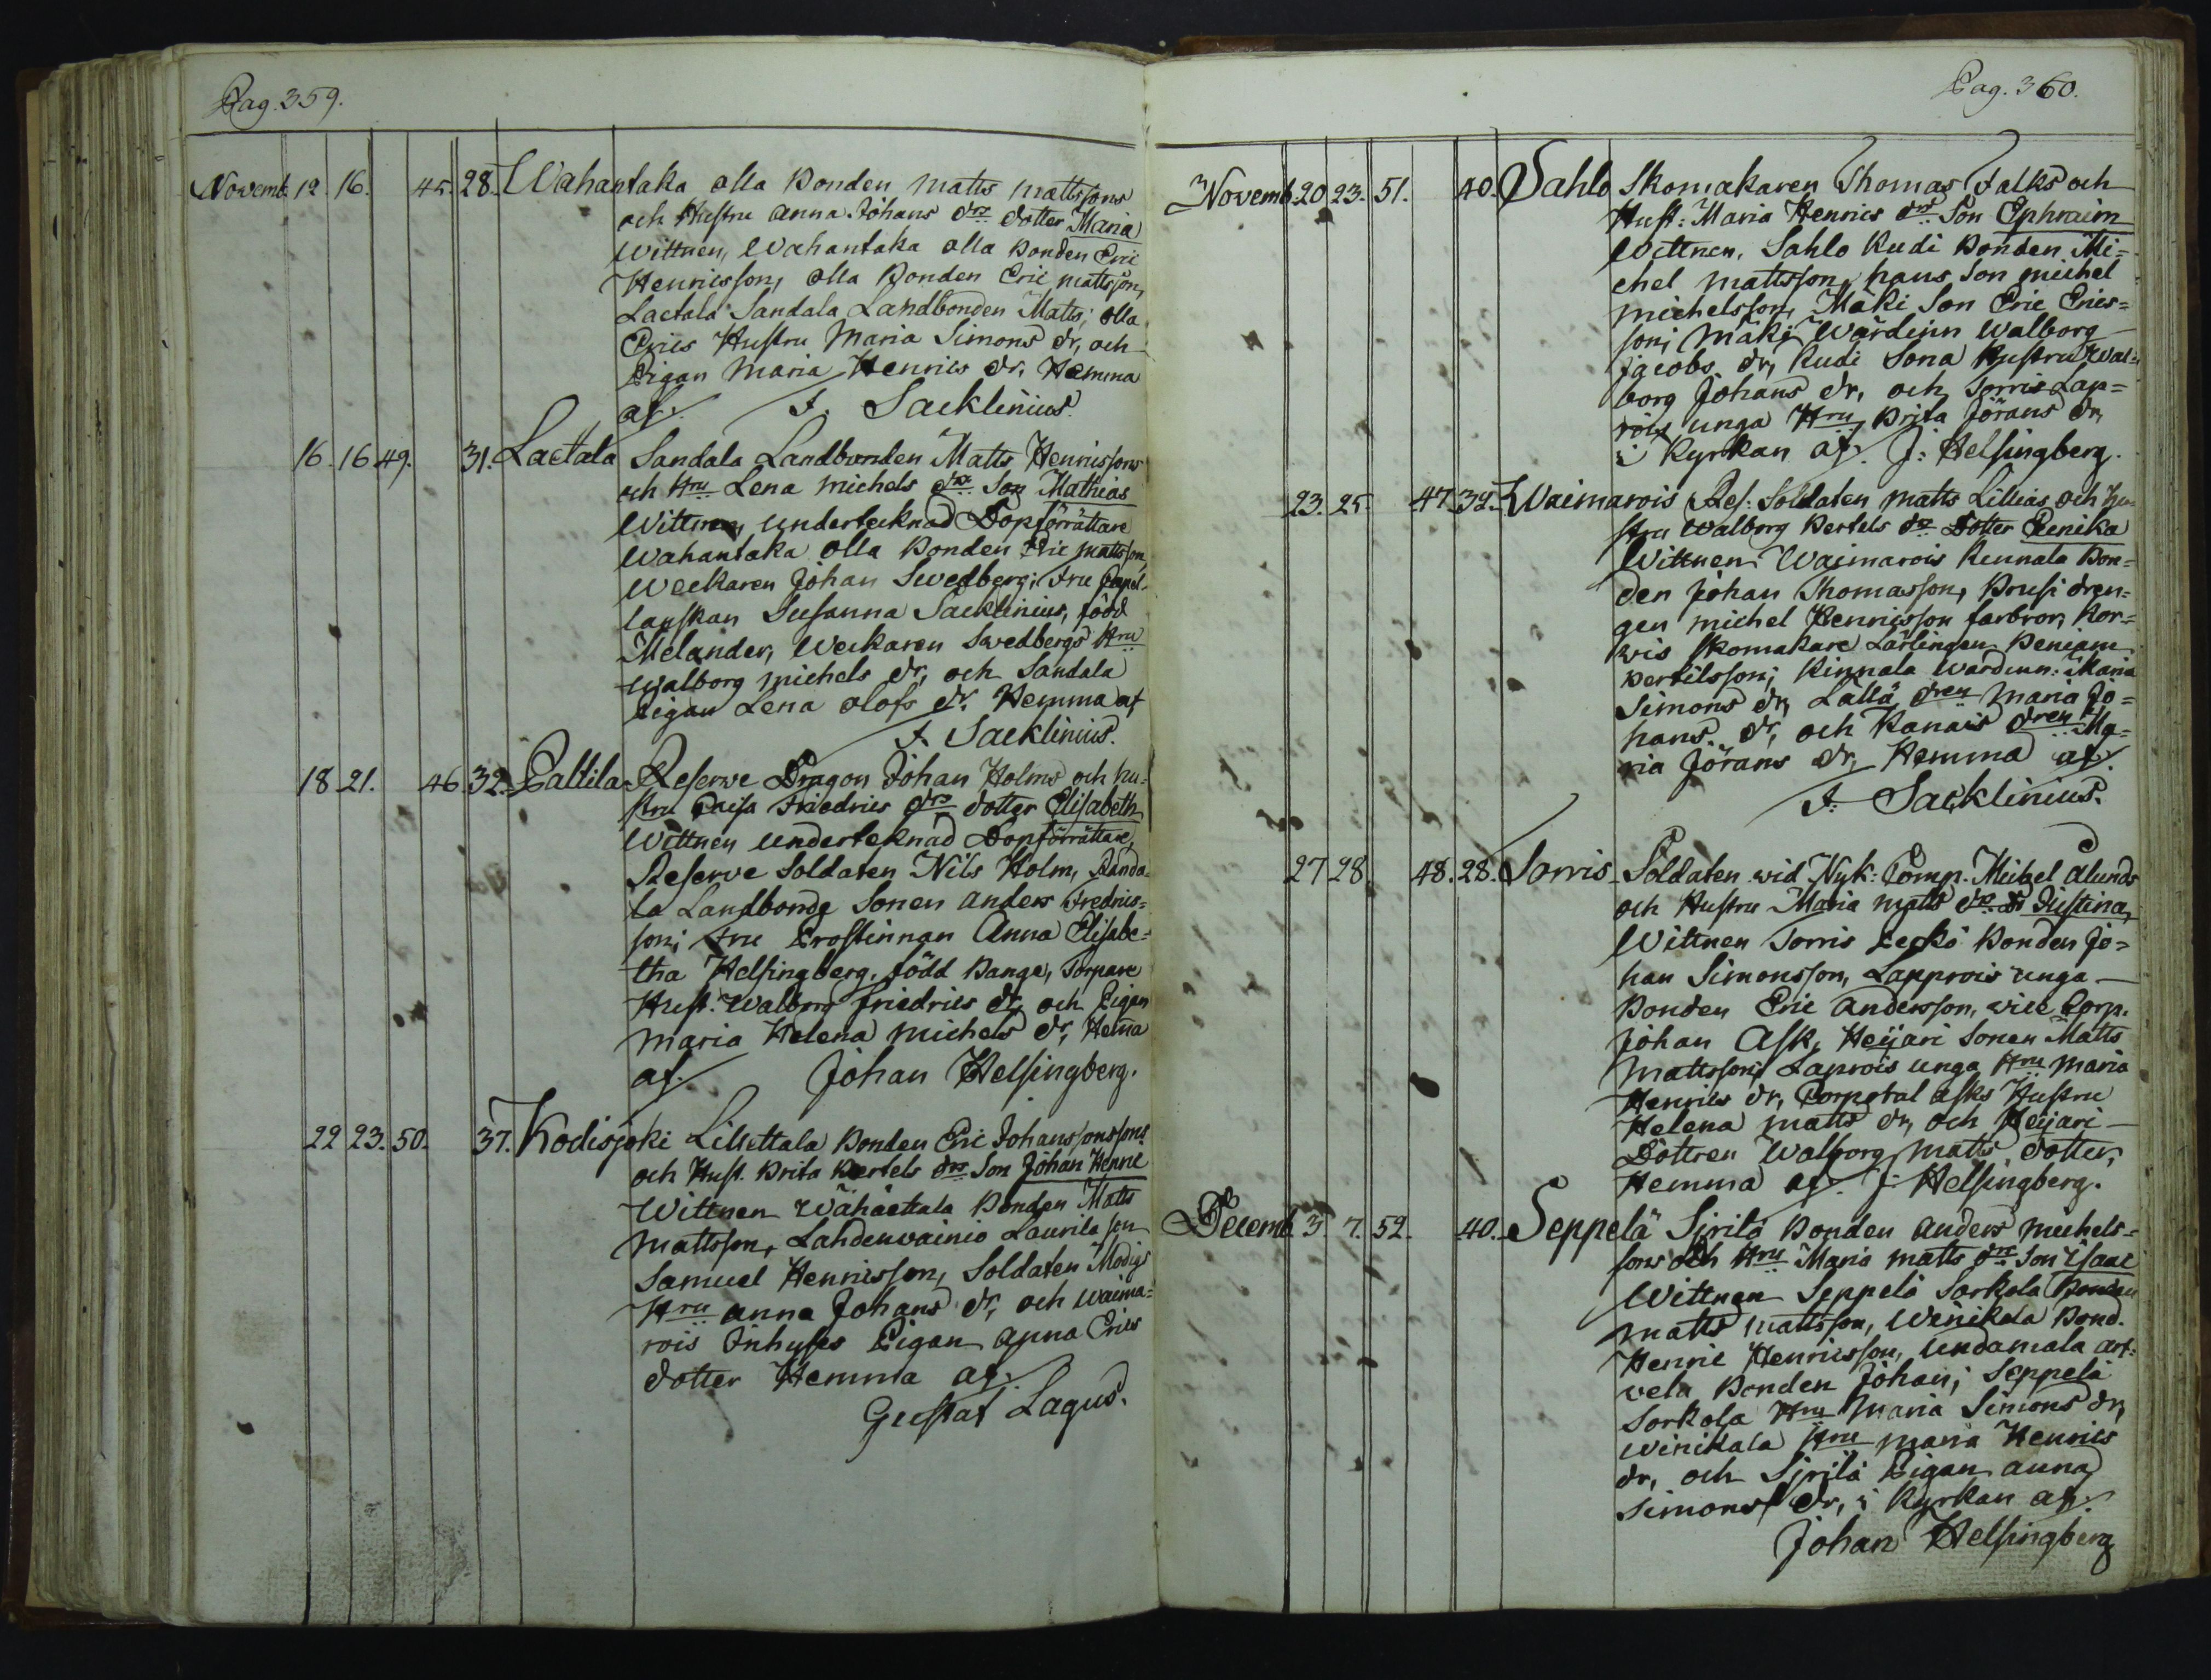 Pag. 359.
Novemb. 12. 16. 45. 28. Wahantaka olla Bonden Matts Mattssons
och Hustru Anna Johans drs dotter Maria
Wittnen, Wahantaka olla Bonden Eric
Henricsson, olla Bonden Eric Mattsson,
Lactala Sandala Landbonden Matts; olla
Erics Hustru Maria Simons dr, och
Pigan Maria Henrics dr. Hemma
af. F. Sacklinius.
16. 16. 49. 31. Lactala Sandala Landbonden Matts Henrissons
och Hru Lena Michels drs Son Mathias
Wittnen, undertecknad Dopförrättare
Wahantaka olla Bonden Eric Mattsson,
Weckaren Johan Swedberg; Fru Capel-
lanskan Susanna Sacklinius, född
Melander, Weckaren Swedbergs Hru
Walborg Michels dr, och Sandala
Pigan Lena Olofs dr. Hemma af
F. Sacklinius.
18. 21. 46. 32. Paltila Reserve Dragon Johan Holms och hu-
stru Caisa Friedrics drs dotter Elisabeth
Wittnen underteknad Dopförrättare,
Reserve Soldaten Nils Holm, Randa-
la Landbonde Sonen Anders Fredrics-
son; Fru Prostinnan Anna Elisabe-
tha Helsingberg, född Bange, Torpare
Hust. Walborg Friedrics dr, och Pigan
Maria Helena Michels dr, Hema
af. Johan Helsingberg.
22 23. 50. 37. Kodisjoki Liliettala Bonden Eric Johanssonssons
och Hust. Brita Bertels drs Son Johan Henric
Wittnen Wähäettala Bonden Matts
Mattsson, Lahdenwainio Laurila son
Samuel Henricsson, Soldaten Modigs
Hru Anna Johans dr, och Waima-
rois Inhyses Pigan Anna Erics
dotter Hemma af.
Gustaf Lagus.
Pag. 360.
Novemb. 20 23. 51. 40. Sahlo Skomakaren Thomas Falks och
Hust: Maria Henrics drs Son Ephraim
Wittnen, Sahlo Rudi Bonden Mi-
chel Mattsson, hans Son Michel
Michelsson, Mäki Son Eric Erics-
son; Mäki Wärdinn Walborg
Jacobs dr, Rudi Sona Hustru Wal-
borg Johans dr, och Sorris Lap-
rois unga Hru Brita Jörans dr,
i Kyrkan af. J: Helsingberg.
23. 25. 47. 32. Waimarois Res: Soldaten Matts Lillias och Hu-
stru Walborg Bertels drs Dotter Renika
Wittnen Waimarois Rennala Bon-
den Johan Thomasson, Brusi dren-
gen Michel Henricsson farbror, Kor-
wis Skomakare Lärlingen Beniam
Bertilsson; Rinnala Wärdinn: Maria
Simons dr, Lallä dren Maria Jo-
hans dr, och Kanais dren Ma-
ria Jörans dr, Hemma af.
F. Sacklinius.
27 28. 48. 28. Sorris Soldaten wid Nyk: Comp. Michel Alunds
och Hustru Maria Matts drs dr Justina,
Wittnen Sorris Pecko Bonden Jo-
han Simonsson, Lapprois unga
Bonden Eric Andersson, vice Corp.
Johan Ask, Heijari Sonen Matts
Mattsson; Laprois unga Hru Maria
Henrics dr, Corporal Asks Hustru
Helena Matts dr, och Heijari
Döttren Walborg Matts dotter,
Hemma af. J. Helsingberg.
Decemb. 3. 7. 52. 40. Seppelä Sjrilä Bonden Anders Michels-
sons och Hru Maria Matts drs Son Isaac
Wittnen Seppelä Sorkola Bonden
Matts Mattsson, Winikala Bond.
Henric Henricsson, Undamala Art-
vela Bonden Johan; Seppelä
Sorkola Hru Maria Simons dr,
Winikala Hru Maria Henrics
dr, och Sjrilä Pigan Anna
Simons dr, i Kyrkan af.
Johan Helsingberg